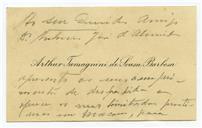 Ao seu querido Amigo
D. António José d'Almeida
Arthur Tamagnini de Sousa Barbosa
apresenta os seus cumpri-
mentos de despedida e
oferece os seus limitados presti-
mos em Macau, para